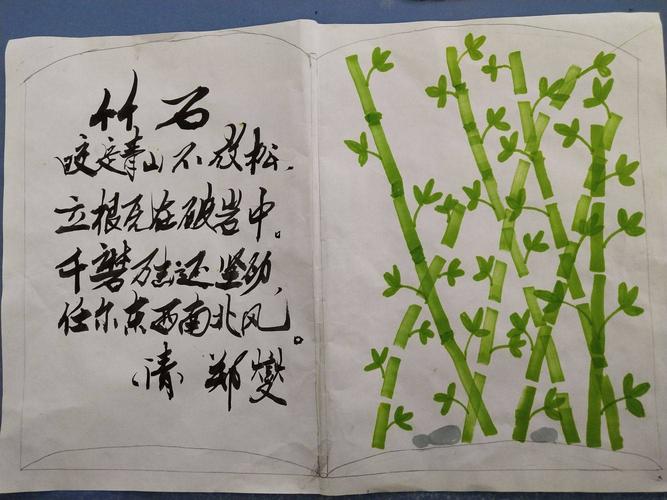 竹石
咬定青山不放松,
立根原在破岩中。
千磨万击还坚劲,
任尔东西南北风。
(清)郑燮